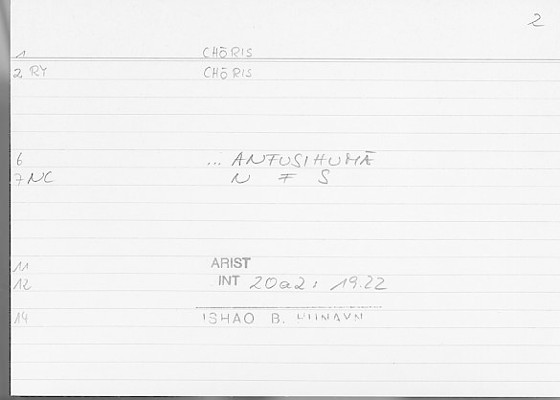 2
1 CHŌRIS
2 RY CHŌRIS
6 ... ANFUSIHUMĀ
7 NC N F S
11 ARIST
12 INT 20a2: 19.22
14 ISHAO B.